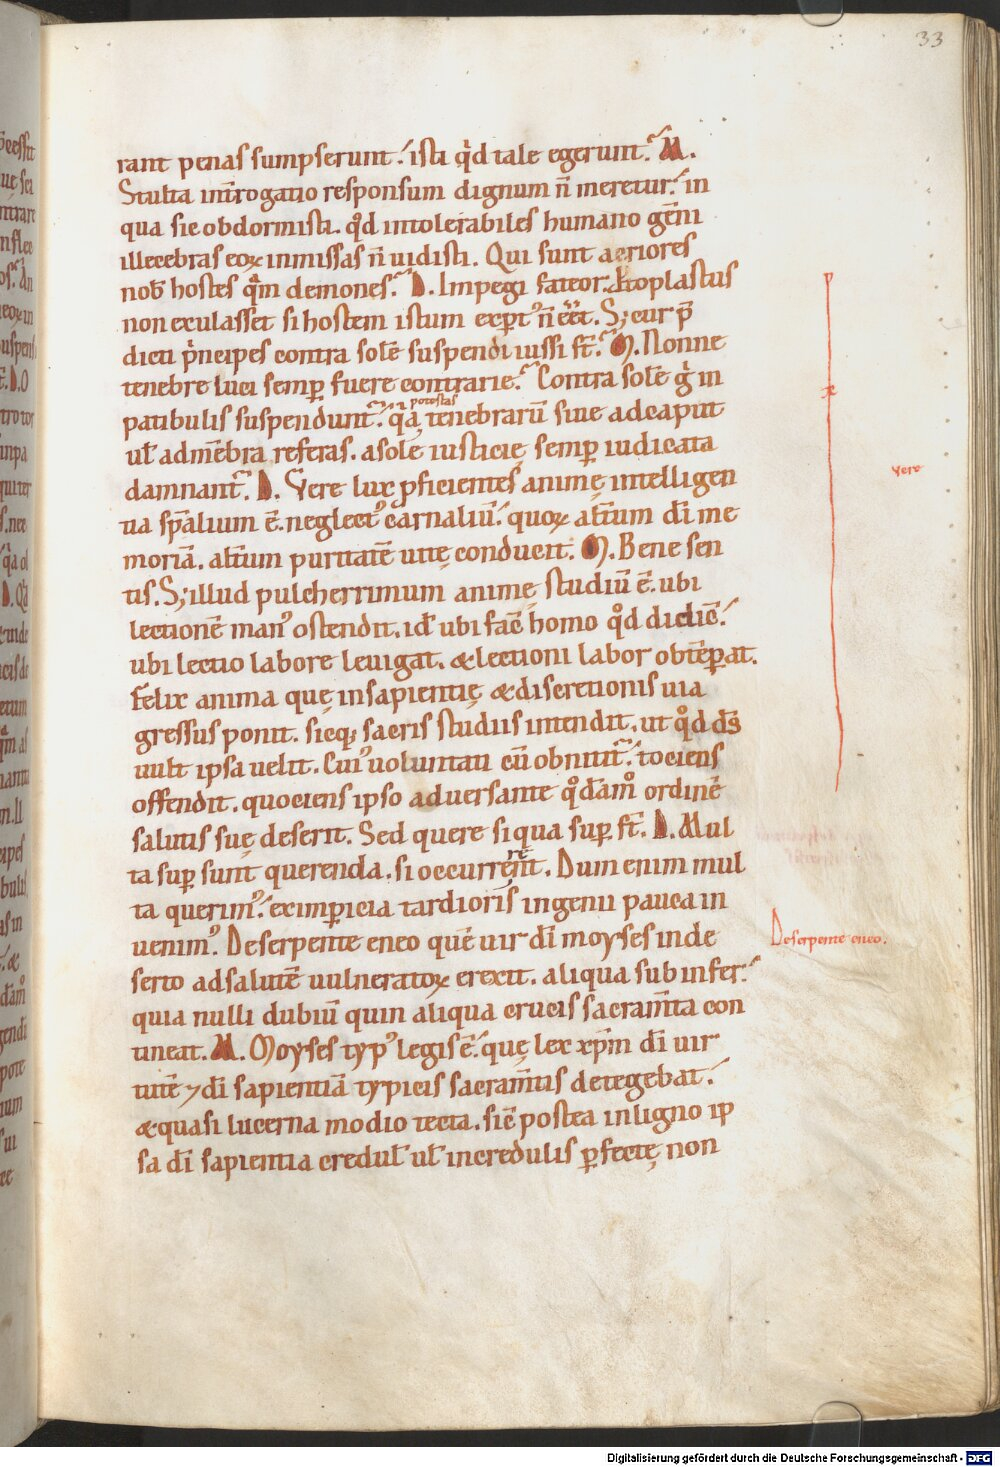 33
rant penas sumpserunt. isti qd tale egerunt. M.
Stulta int̄rogatio responsum dignum n̄ meretur. in
qua sic obdormisti. qd intolerabiles humano gen̄i
illecebras eoꝝ inmissas n̄ uidisti. Qui sunt acriores
nob̄ hostes qm̄ demones. D. Impegi fateor.
non exulasset si hostem istum expert᾽ n̄ eēt. Sꝫ cur p̄
dicti p̄ncipes contra sole suspendi iussi st̄. M. Nonne
tenebre luci semꝑ fuere contrarie. Contra solē g̊ in
patibulis suspendunt᷑. qa potestas tenebrarū siue ad caput
ul̄ ad mēbra referas. a sole iusticię semꝑ iudicata
damnant᷑. D. Vere lux ꝓficientes animę intelligen
tia sp̄alium ē. neglect᾽ carnaliū. quoꝝ alt̄um di me
moriā. alt̄um puritatē uitę conducit. M. Bene sen
tis. Sꝫ illud pulcherrimum animę studiū ē. ubi
lectionē man᾽ ostendit. id ubi fac̄ homo qd didic̄.
ubi lectio labore leuigat. & lectioni labor obtēꝑat.
Felix anima quę in sapientię & discretionis uia
gressus ponit. sicqꝫ sacris studiis intendit. ut qd ds̄
uult ipsa uelit. Cui᾽ uoluntati cū obnitit᷑. tociens
offendit. quociens ipso aduersante qdam̄ ordinē
salutis suę deserit. Sed quere si qua suꝑ st̄. D. Mul
ta suꝑ sunt querenda. si occurrerent. Dum enim mul
ta querim᾽. ex imꝑicia tardioris ingenii pauca in
uenim᾽. De serpente eneo quē uir di moyses in de
serto ad salutē uulneratoꝝ erexit. aliqua sub infer.
quia nulli dubiū quin aliqua crucis sacram̄ta con
tineat. M. Moyses typ᾽ legis ē. quę lex xp̄m di uir
tutē ⁊ di sapientiā typicis sacram̄tis detegebat.
& quasi lucerna modio tecta. sic̄ postea in ligno ip
sa di sapientia credul̄ ul̄ incredulis ꝑfectę non
Vere
De serpente eneo.
Digitalisierung gefördert durch die Deutsche Forschungsgemeinschaft - DFG